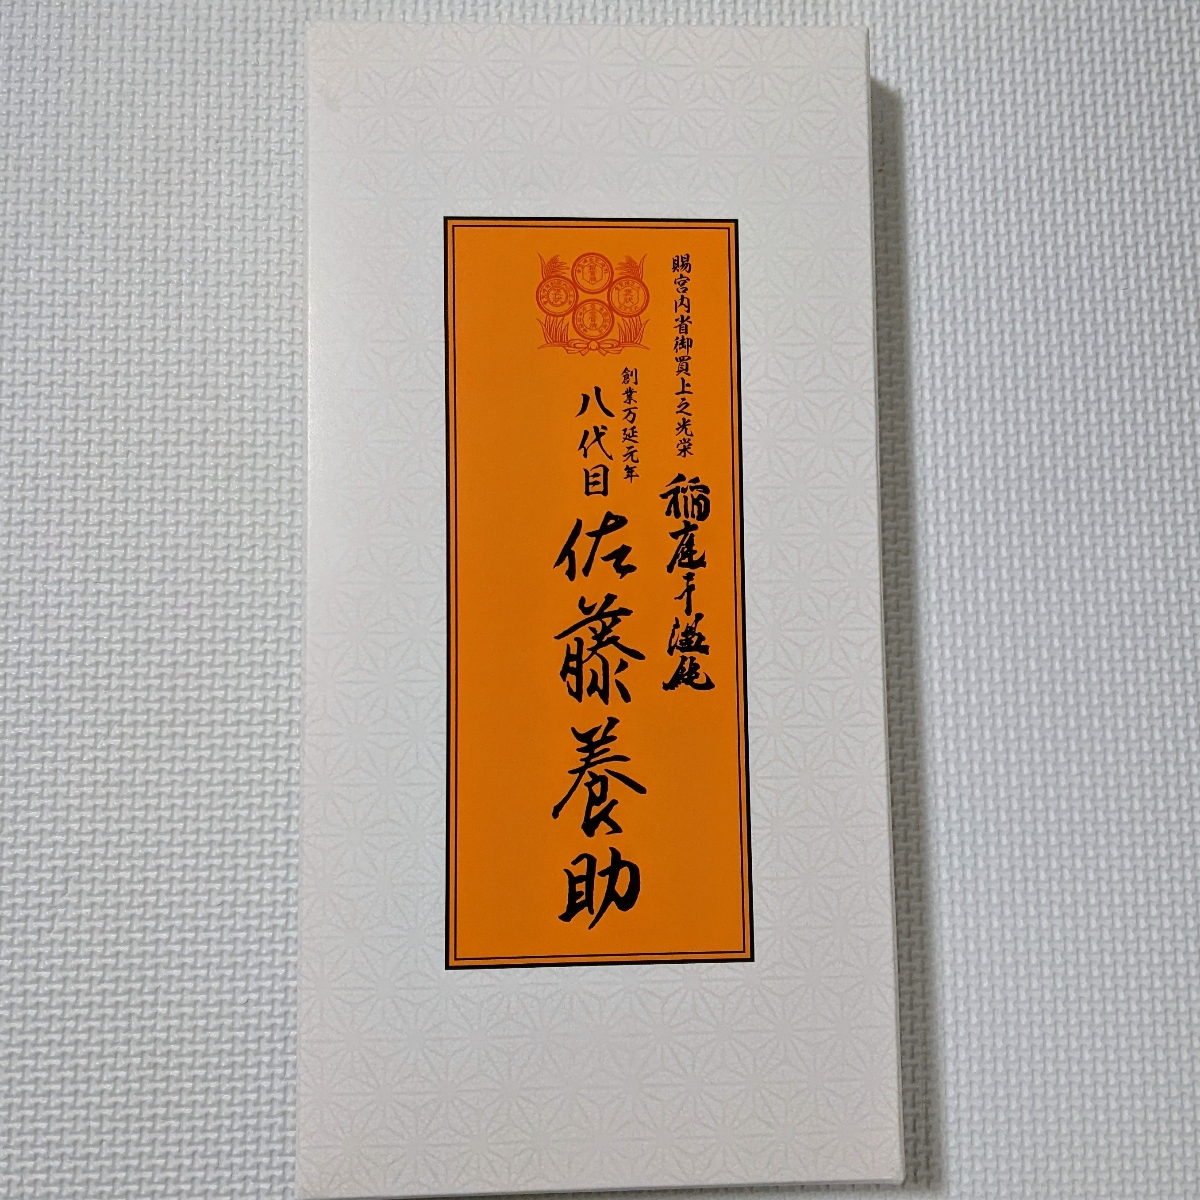 賜宮内省御買上之光栄
稲庭干温飩
創業万延元年
八代目
佐藤養助